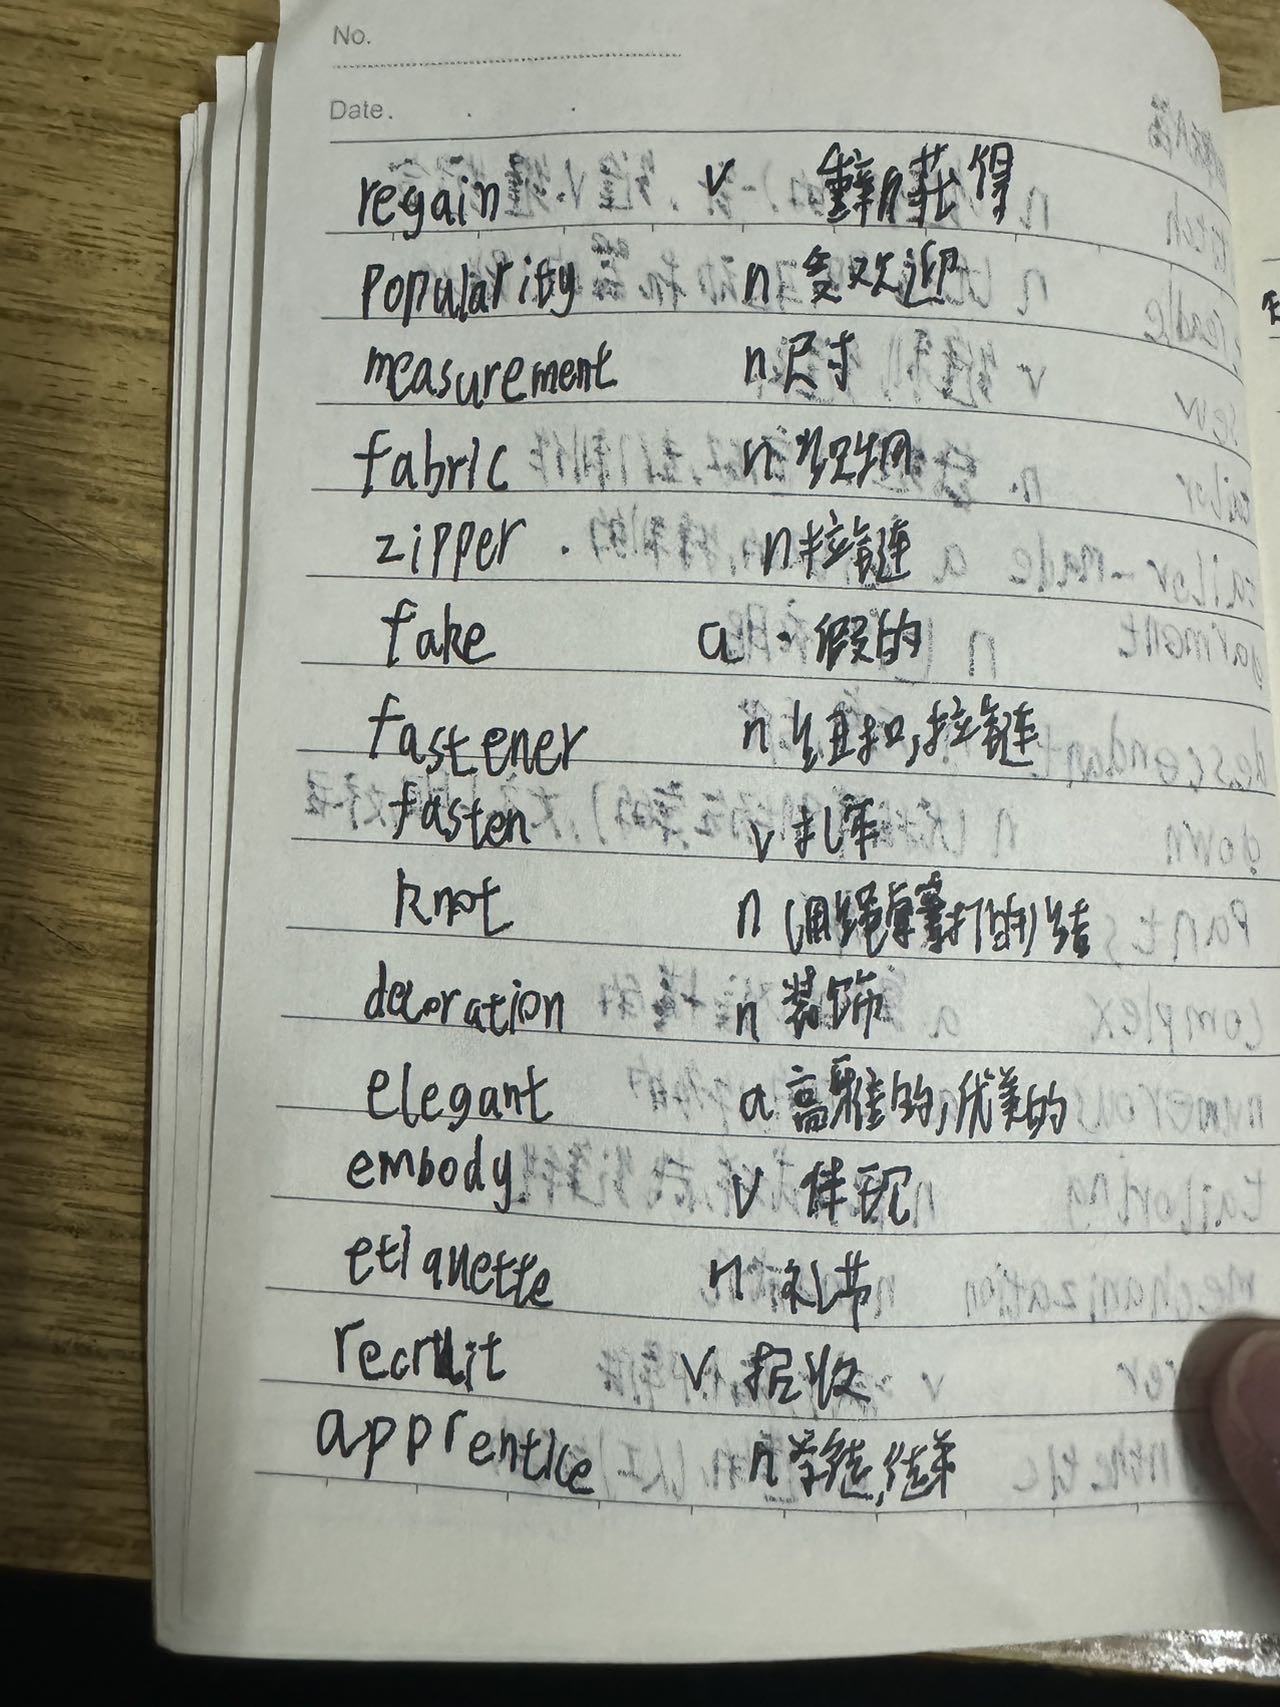 No.
Date.
regain v 重新获得
popularity n 受欢迎
measurement n 尺寸
fabric n 织物
zipper. n 拉链
fake a. 假的
fastener n 纽扣,拉链
fasten v 扎牢
knot n (用绳等打的)结
decoration n 装饰
elegant a 高雅的,优美的
embody v 体现
etiquette n 礼节
recruit v 招收
apprentice n 学徒,徒弟